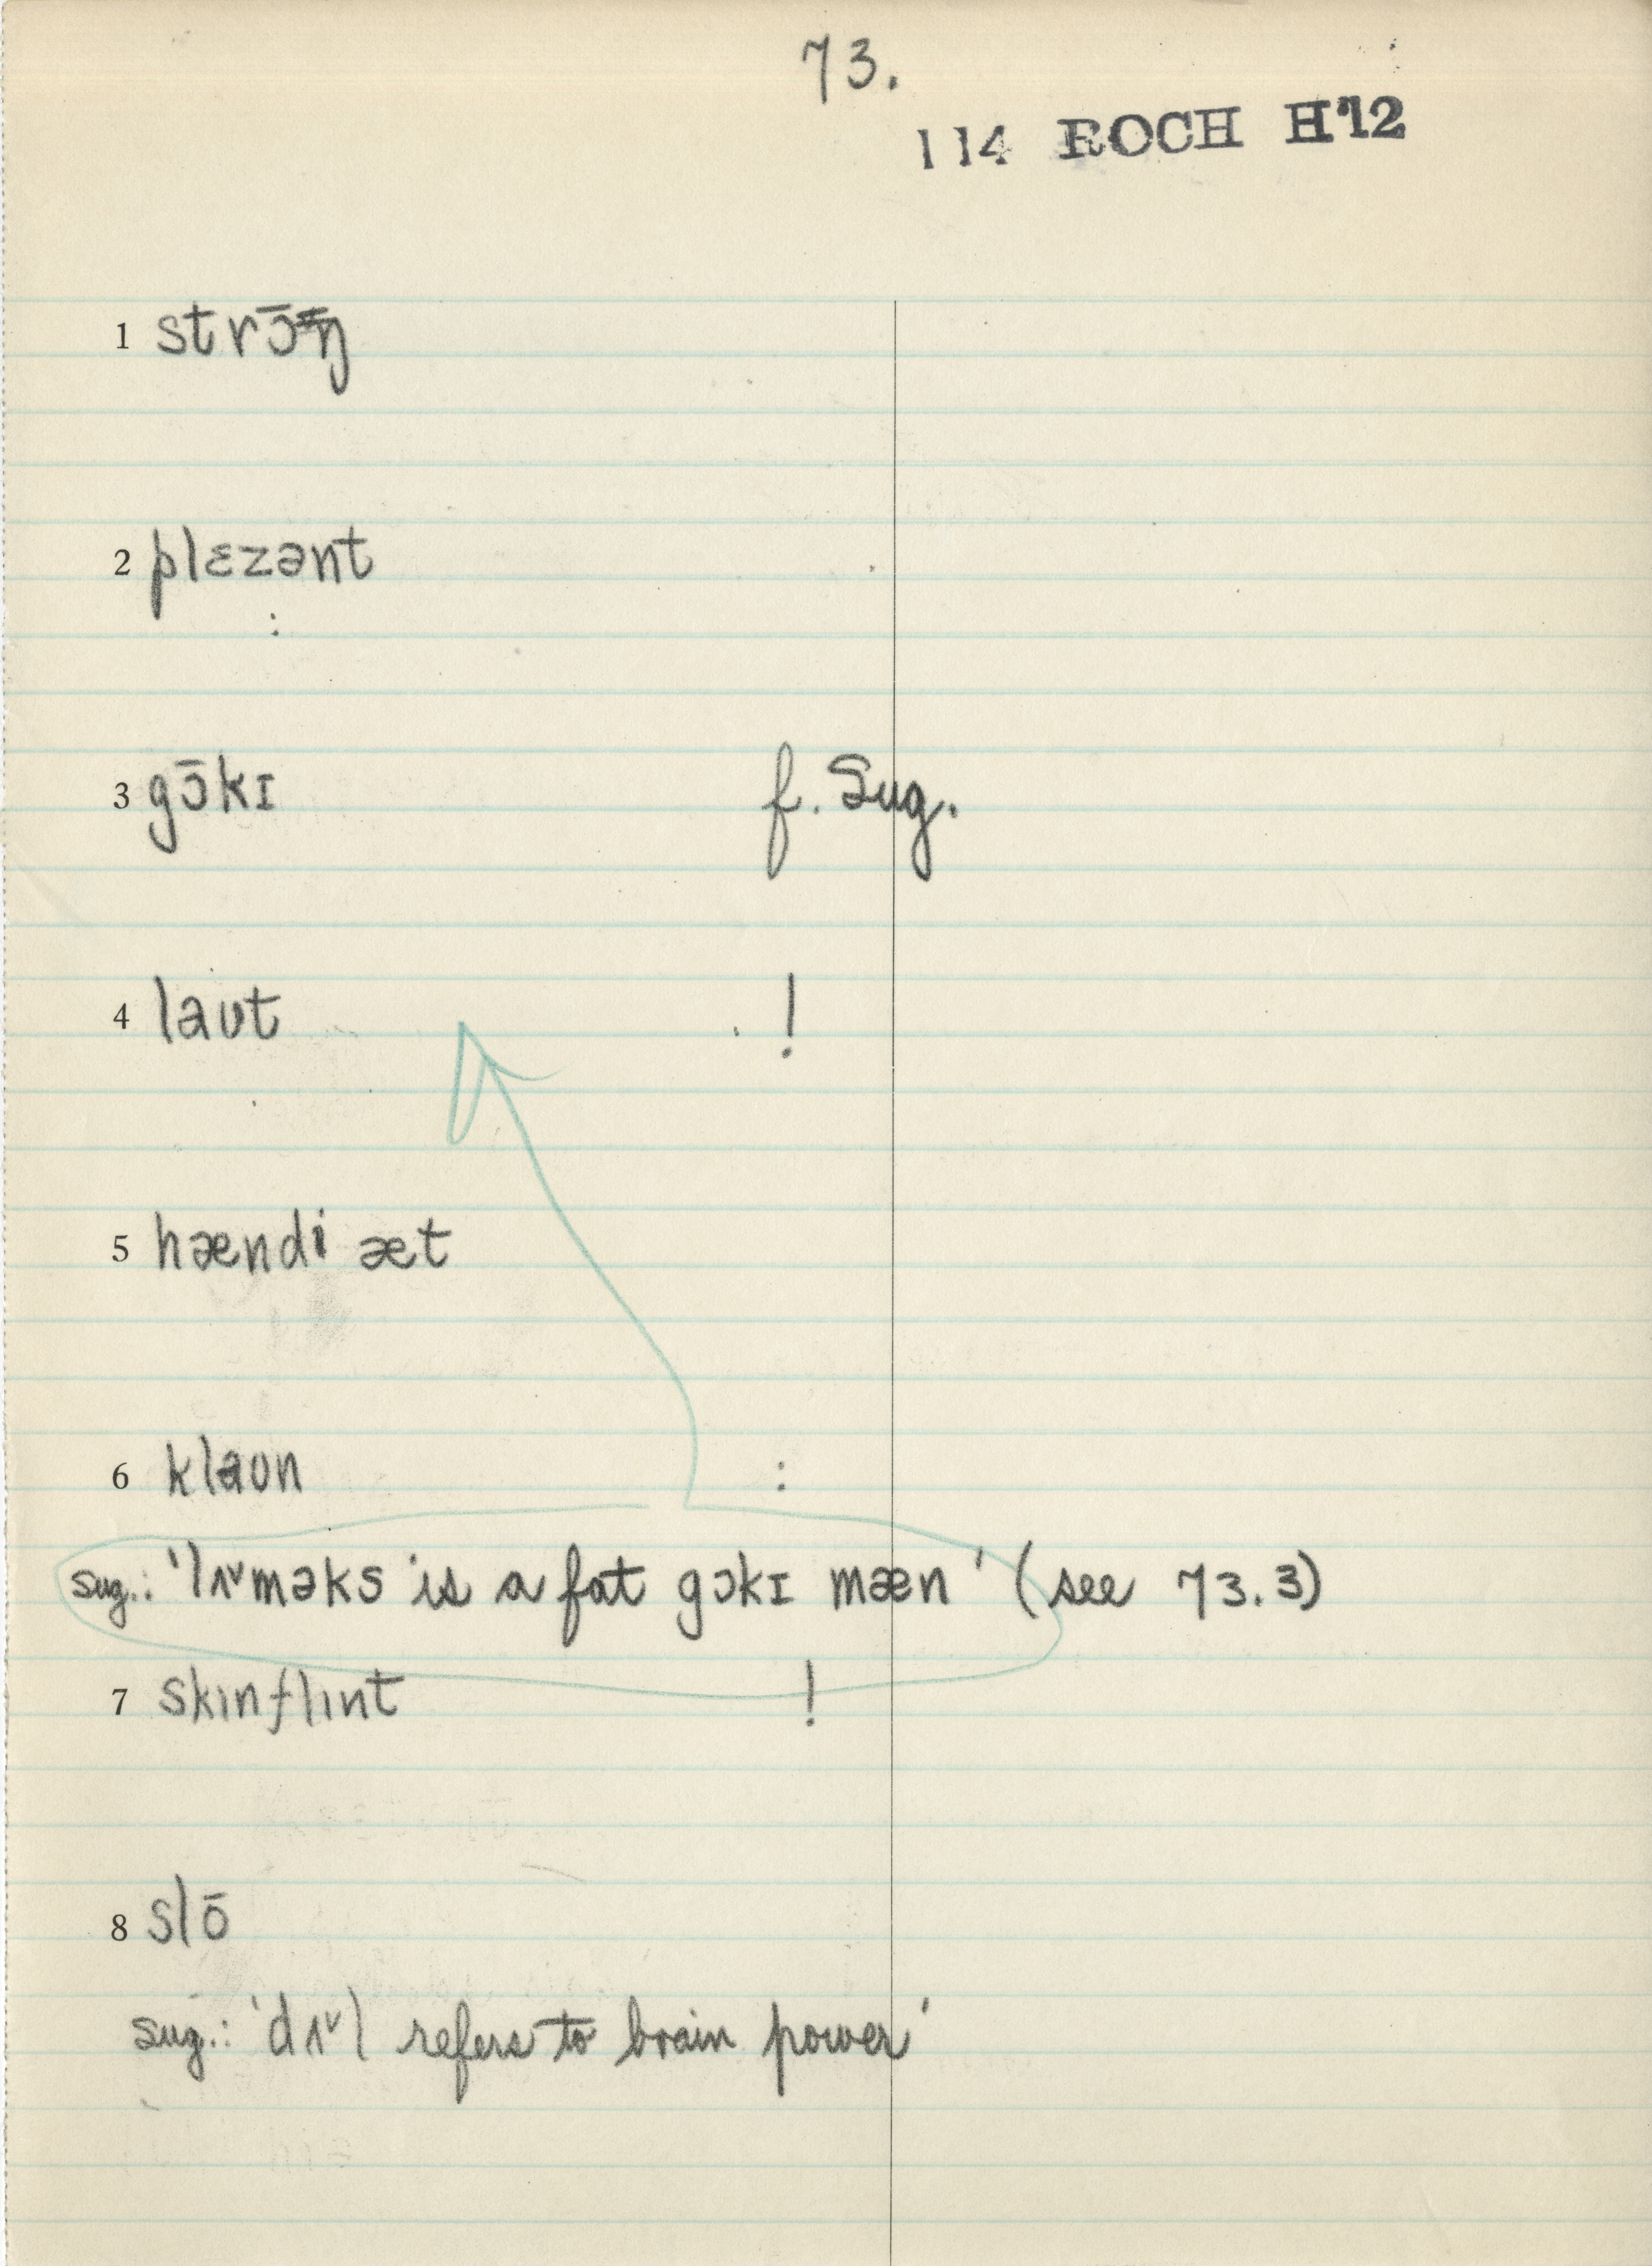 73.
114 ROCH H'12
1 strɔ̄ŋ
2 plɛzənt
:
3 gɔ̄kɪ f. Sug.
4 laʊt !
5 hændi æt
6 klaʊn :
sug.: 'lʌ˅məks is a fat gɔkɪ mæn' (see 73.3)
7 skɪnflɪnt !
8 slō
sug.: 'dʌ˅l refers to brain power'